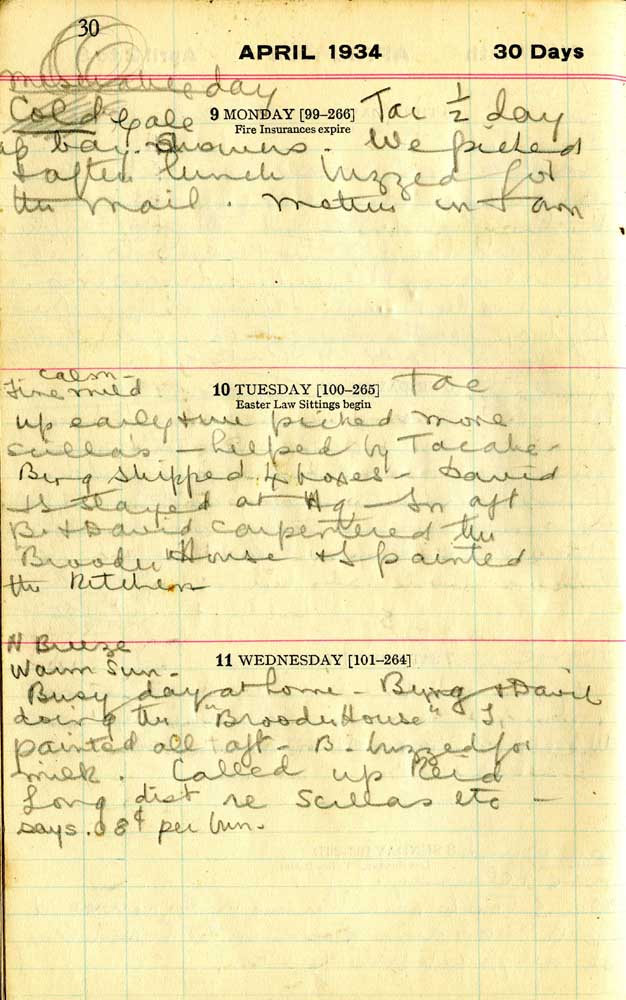 30
APRIL 1934 30 Days
Miserable day
Cold Gale 9 MONDAY [99–266] Tac ½ day
Fire Insurances expire
up bay. Showers. We picked
& after lunch buzzed for
the mail. in town
Calm –
Fine mild 10 TUESDAY [100–265] Tac
Easter Law Sittings begin
up early & we picked more
scillas – helped by Tac ahe-
Byng shipped 4 boxes – David
& I stayed at Hq – In aft
B. & David carpentered the
"Brooder House & I painted
the kitchen
N Breeze
Warm Sun – 11 WEDNESDAY [101–264]
Busy day at home – Byng & David
doing the "Brooder House" I
painted all aft – B. buzzed for
milk. Called up Reid
Long dist re Scillas etc –
says .08¢ per bun.